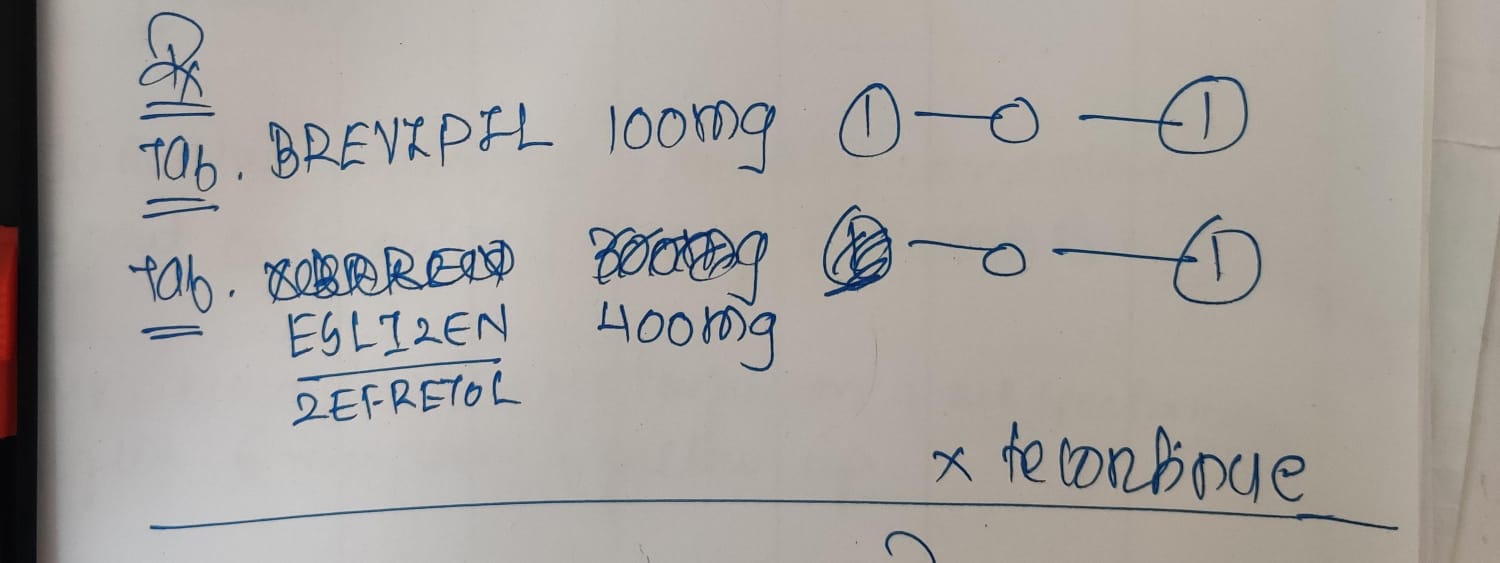 Rx
Tab. BREVIPIL 100mg 1 — 0 — 1
Tab. — 0 — 1
ESLIZEN 400mg
ZEFRETOL
x to continue